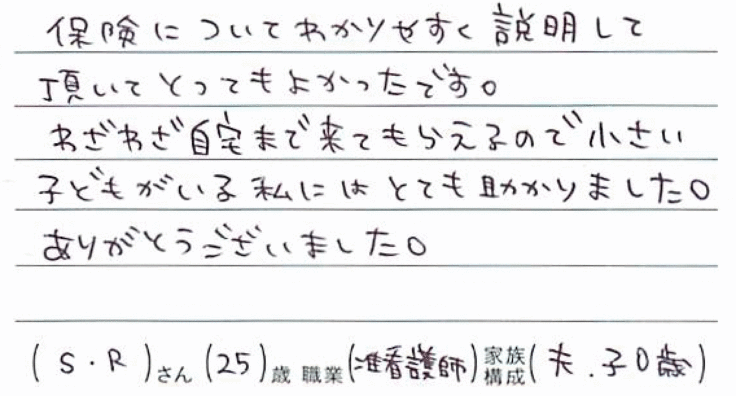 保険についてわかりやすく説明して
頂いてとってもよかったです。
わざわざ自宅まで来てもらえるので小さい
子どもがいる私にはとても助かりました。
ありがとうございました。
(S・R)さん(25)歳 職業(准看護師)家族構成(夫.子0歳)